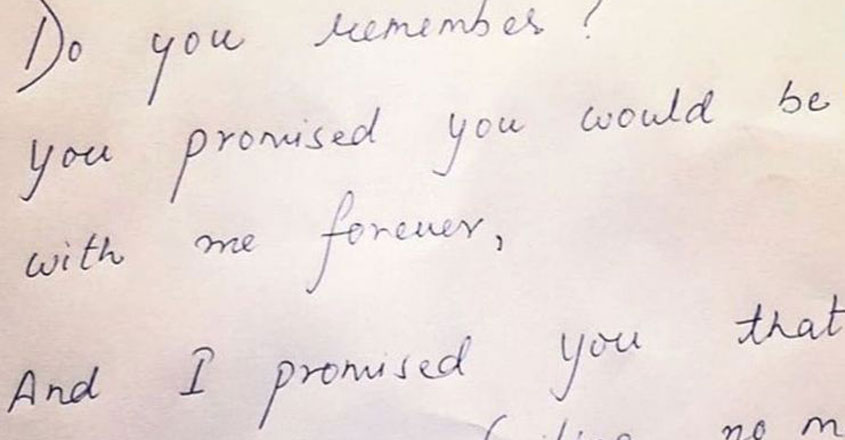 Do you remember?
you promised you would be
with me forever,
And I promised you that
no